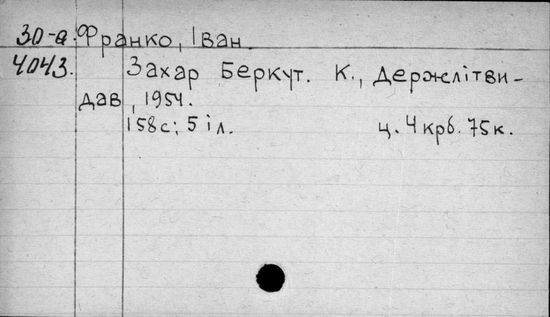 30-а. Франко, Іван.
4043. Захар Беркут. К., Держлітви-
дав, 1954.
158с; 5 іл. ц. 4 крб. 75к.